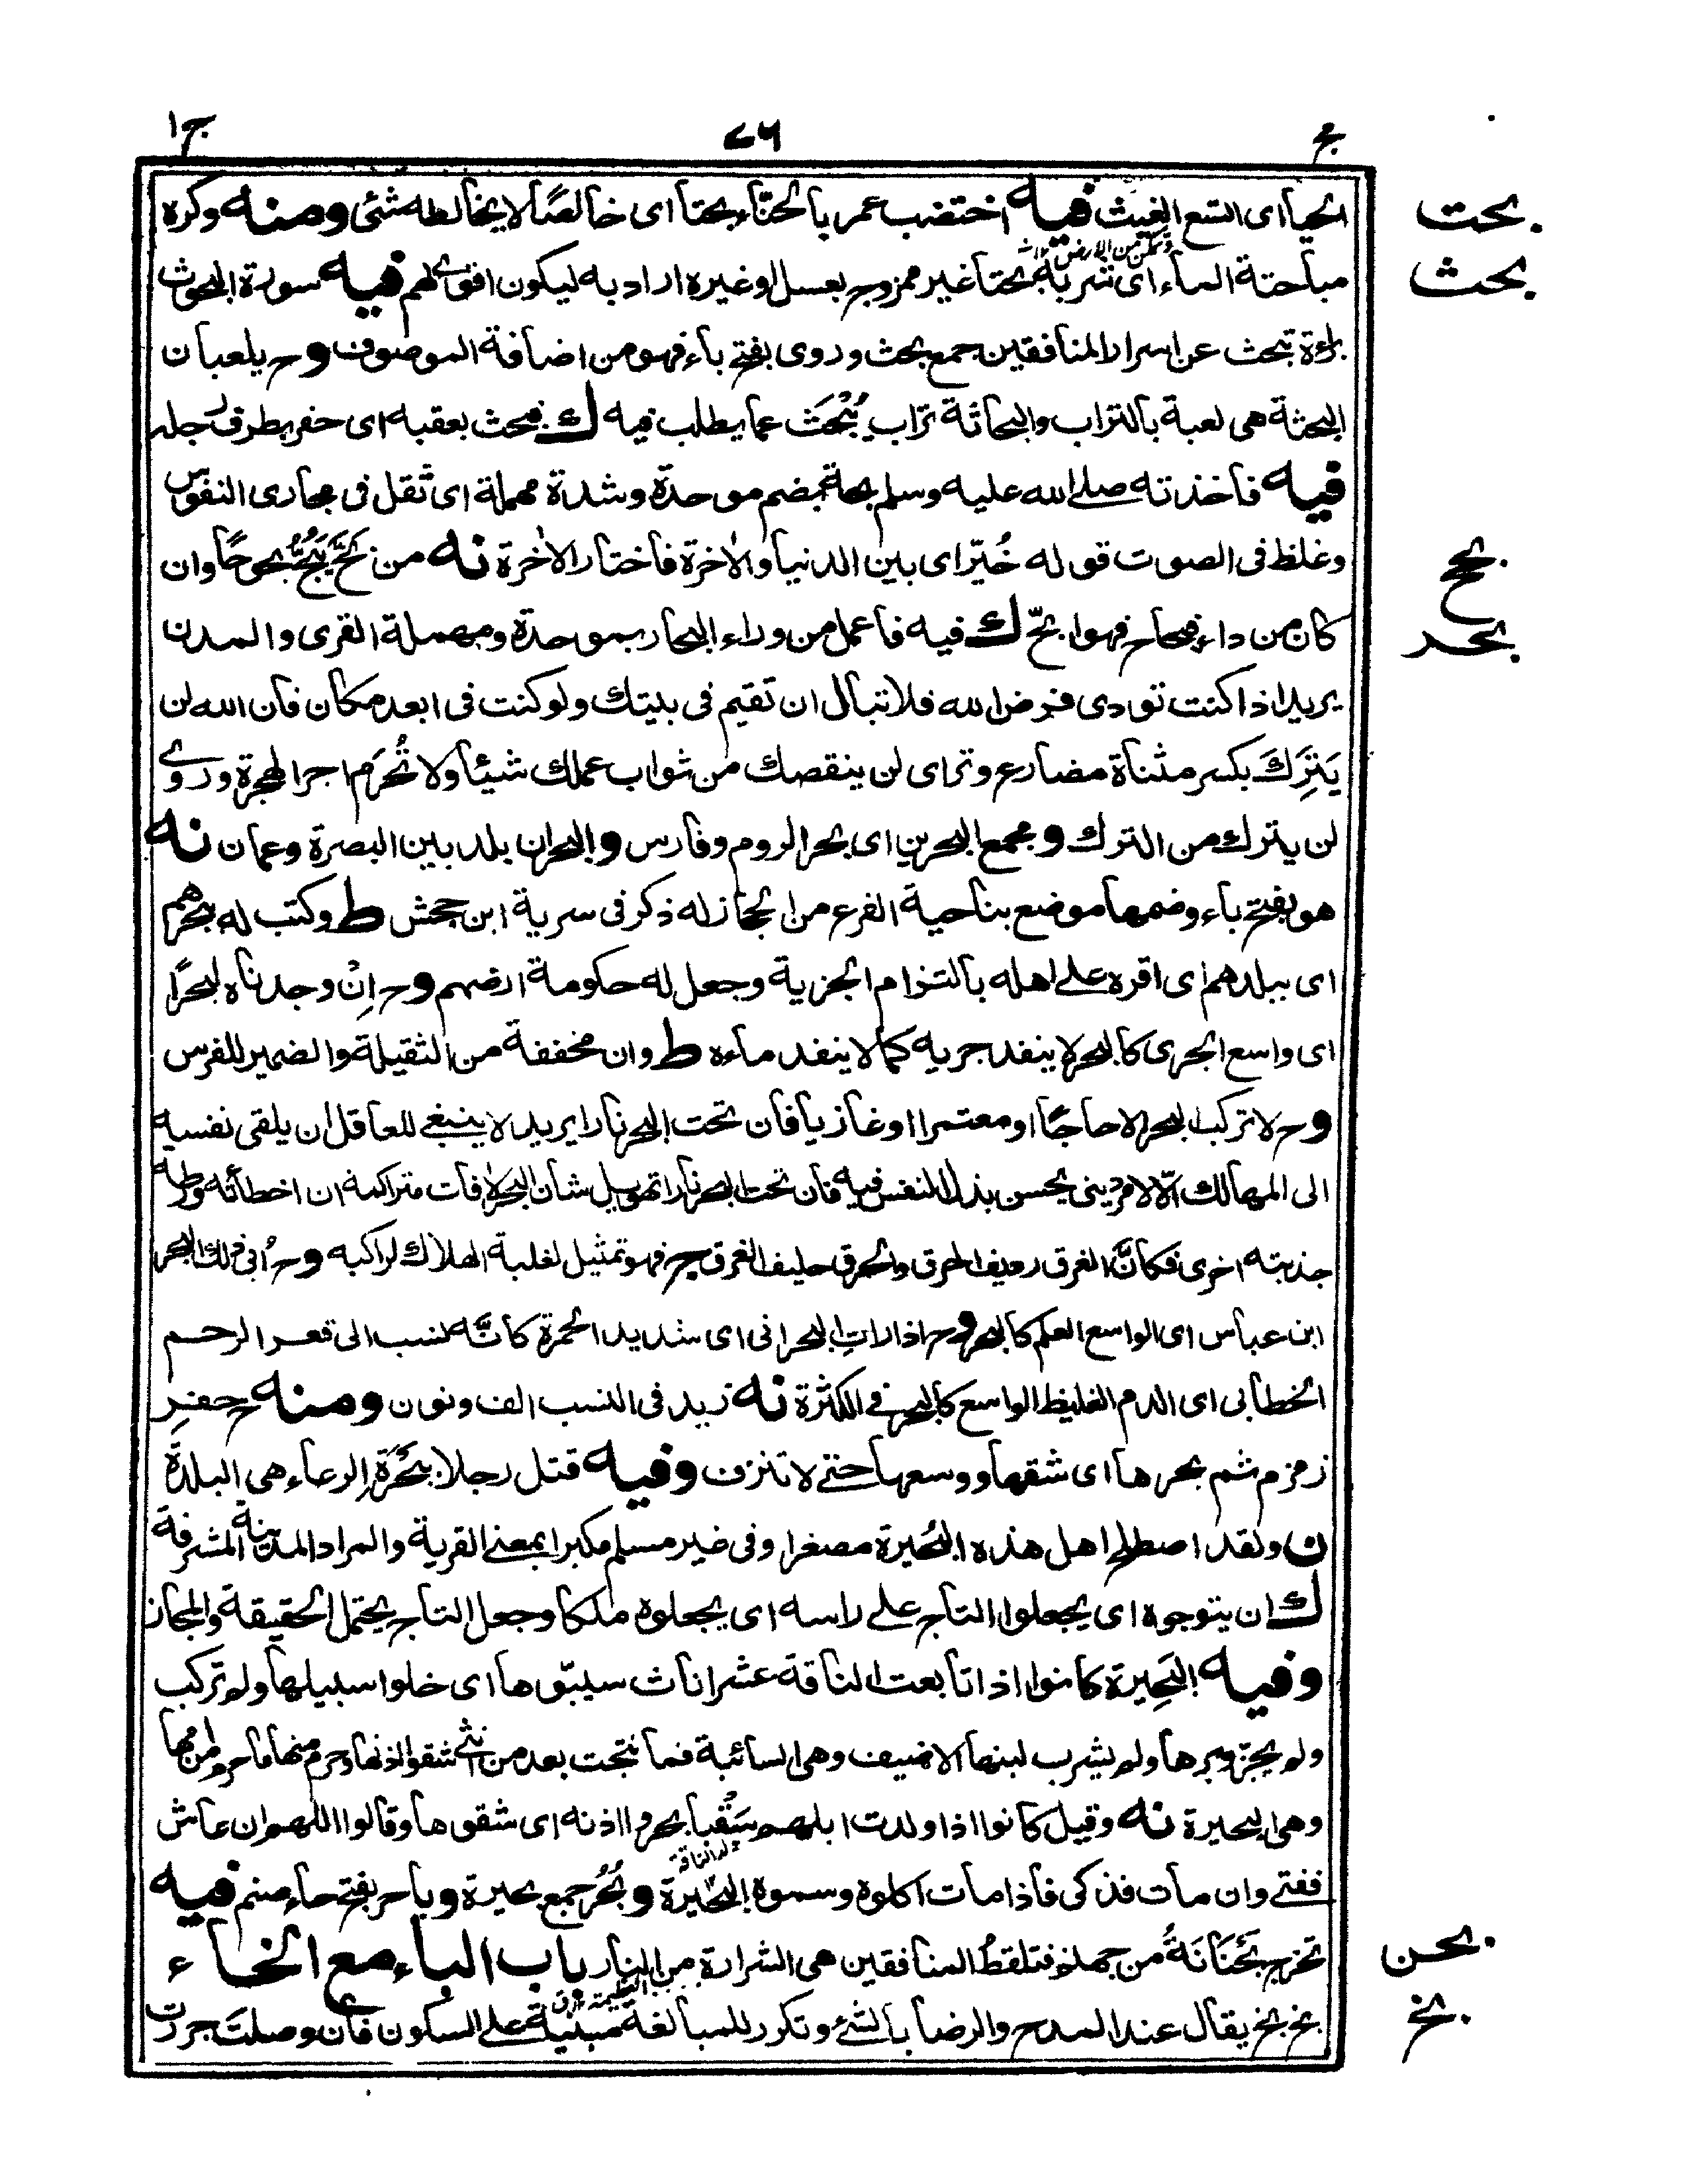 بح
٧٦
ج ا
بحت
الحيا اى اتسع الغيث فيه اختضب عمر بالحنّاء بحتا اى خالصًا لا يخالطه شئ ومنه وكره
بحث
مباحتة الماء اى شربه بحتا غير ممزوج بعسل او غيره اراد به ليكون اقوى لهم فيه سورة البحوث
براءة تبحث عن اسرار المنافقين جمع بحث وروى بفتح باء فهو من اضافة الموصوف وح يلعبان
البحثة هى لعبة بالتراب والبحاثة تراب يُبْحَث عما يطلب فيه ك فبحث بعقبه اى حفر بطرف رجله
فيه فاخذته صلى الله عليه وسلم بحة بضم موحدة وشدة مهملة اى ثقل فى مجارى النفوس
بح
وغلظ فى الصوت قوله خُيّر اى بين الدنيا والاخرة فاختار الاخرة نه من بَحَّ يَبُحُّ بحوحًا وان
بحر
كان من داء فبحاح فهو ابحّ ك فيه فاعمل من وراء البحار بموحدة ومهملة القرى والمدن
يريد اذا كنت تودى فرض الله فلا تبال ان تقيم فى بيتك ولو كنت فى ابعد مكان فان الله لن
يَتِرَكَ بكسر مثناة مضارع وتر اى لن ينقصك من ثواب عملك شيئا ولا تُحْرَم اجر الهجرة وروى
لن يترك من الترك ومجمع البحرين اى بحر الروم وفارس والبحران بلد بين البصرة وعمان نه
هو بفتح باء وضمها موضع بناحية الفرع من الحجاز له ذكر فى سرية ابن جحش ط وكتب له ببحرهم
اى ببلدهم اى اقره على اهله بالتزام الجزية وجعل له حكومة ارضهم وح اِنْ وجدناه لبحرًا
اى واسع الجرى كالبحر لا ينفد جريه كما لا ينفد ماءه ط وان مخففة من الثقيلة والضمير للفرس
وح لا تركب البحر الا حاجًا او معتمرا او غازيا فان تحت البحر نارا يريد لا ينبغى للعاقل ان يلقى نفسه
الى المهالك الّا لامر دينى يحسن بذل النفس فيه فان تحت البحر نارا تهويل شان البحر لافات متراكمة ان اخطأته ورطة
جذبته اخرى فكانَّ الغرق رديف الحرق والحرق حليف الغرق ج فهو تمثيل لغلبة الهلاك لراكبه وح اُبى ذلك البحر
ابن عباس اى الواسع العلم كالبحر وح اذا رات البحرانى اى شديد الحمرة كانَّه نسب الى قعر الرحم
الخطابى اى الدم الغليظ الواسع كالبحر فى الكثرة نه زيد فى النسب الف ونون ومنه ح حفر
زمزم ثم بحرها اى شقها ووسعها حتى لا تنزف وفيه قتل رجلا ببَحْرَةِ الرعاء هى البلدة
ن ولقد اصطلح اهل هذه البُحَيرة مصغرا وفى غير مسلم مكبرا بمعنى القرية والمراد المدينة المشرفة
ك ان يتوجوه اى يجعلوا التاج على راسه اى يجعلوه ملكا وجعل التاج يحتمل الحقيقة والمجاز
وفيه البَحِيرة كانوا اذا تابعت الناقة عشر اناث سيّبوها اى خلوا سبيلها ولم تركب
ولم يجزّ وبرها ولم يشرب لبنها الا ضيف وهى السائبة فما نتجت بعد من انثى شقوا اذنها وحرم منها ما حرم من امها
وهى البحيرة نه وقيل كانوا اذا ولدت ابلهم سَقْبا بحروا اذنه اى شقوها وقالوا اللهم ان عاش
ففتى وان مات فذكى فاذا مات اكلوه وسموه البحيرة وبُحُر جمع بحيرة وباحر بفتح حاء صنم فيه
بحن
تخرج بَحْنَانَةٌ من جهنم فتلقط المنافقين هى الشرارة من النار باب الباء مع الخاء
بخ
بخ بخ يقال عند المدح والرضا بالشئ وتكرر للمبالغة مبنية على السكون فان وصلتَ جررت